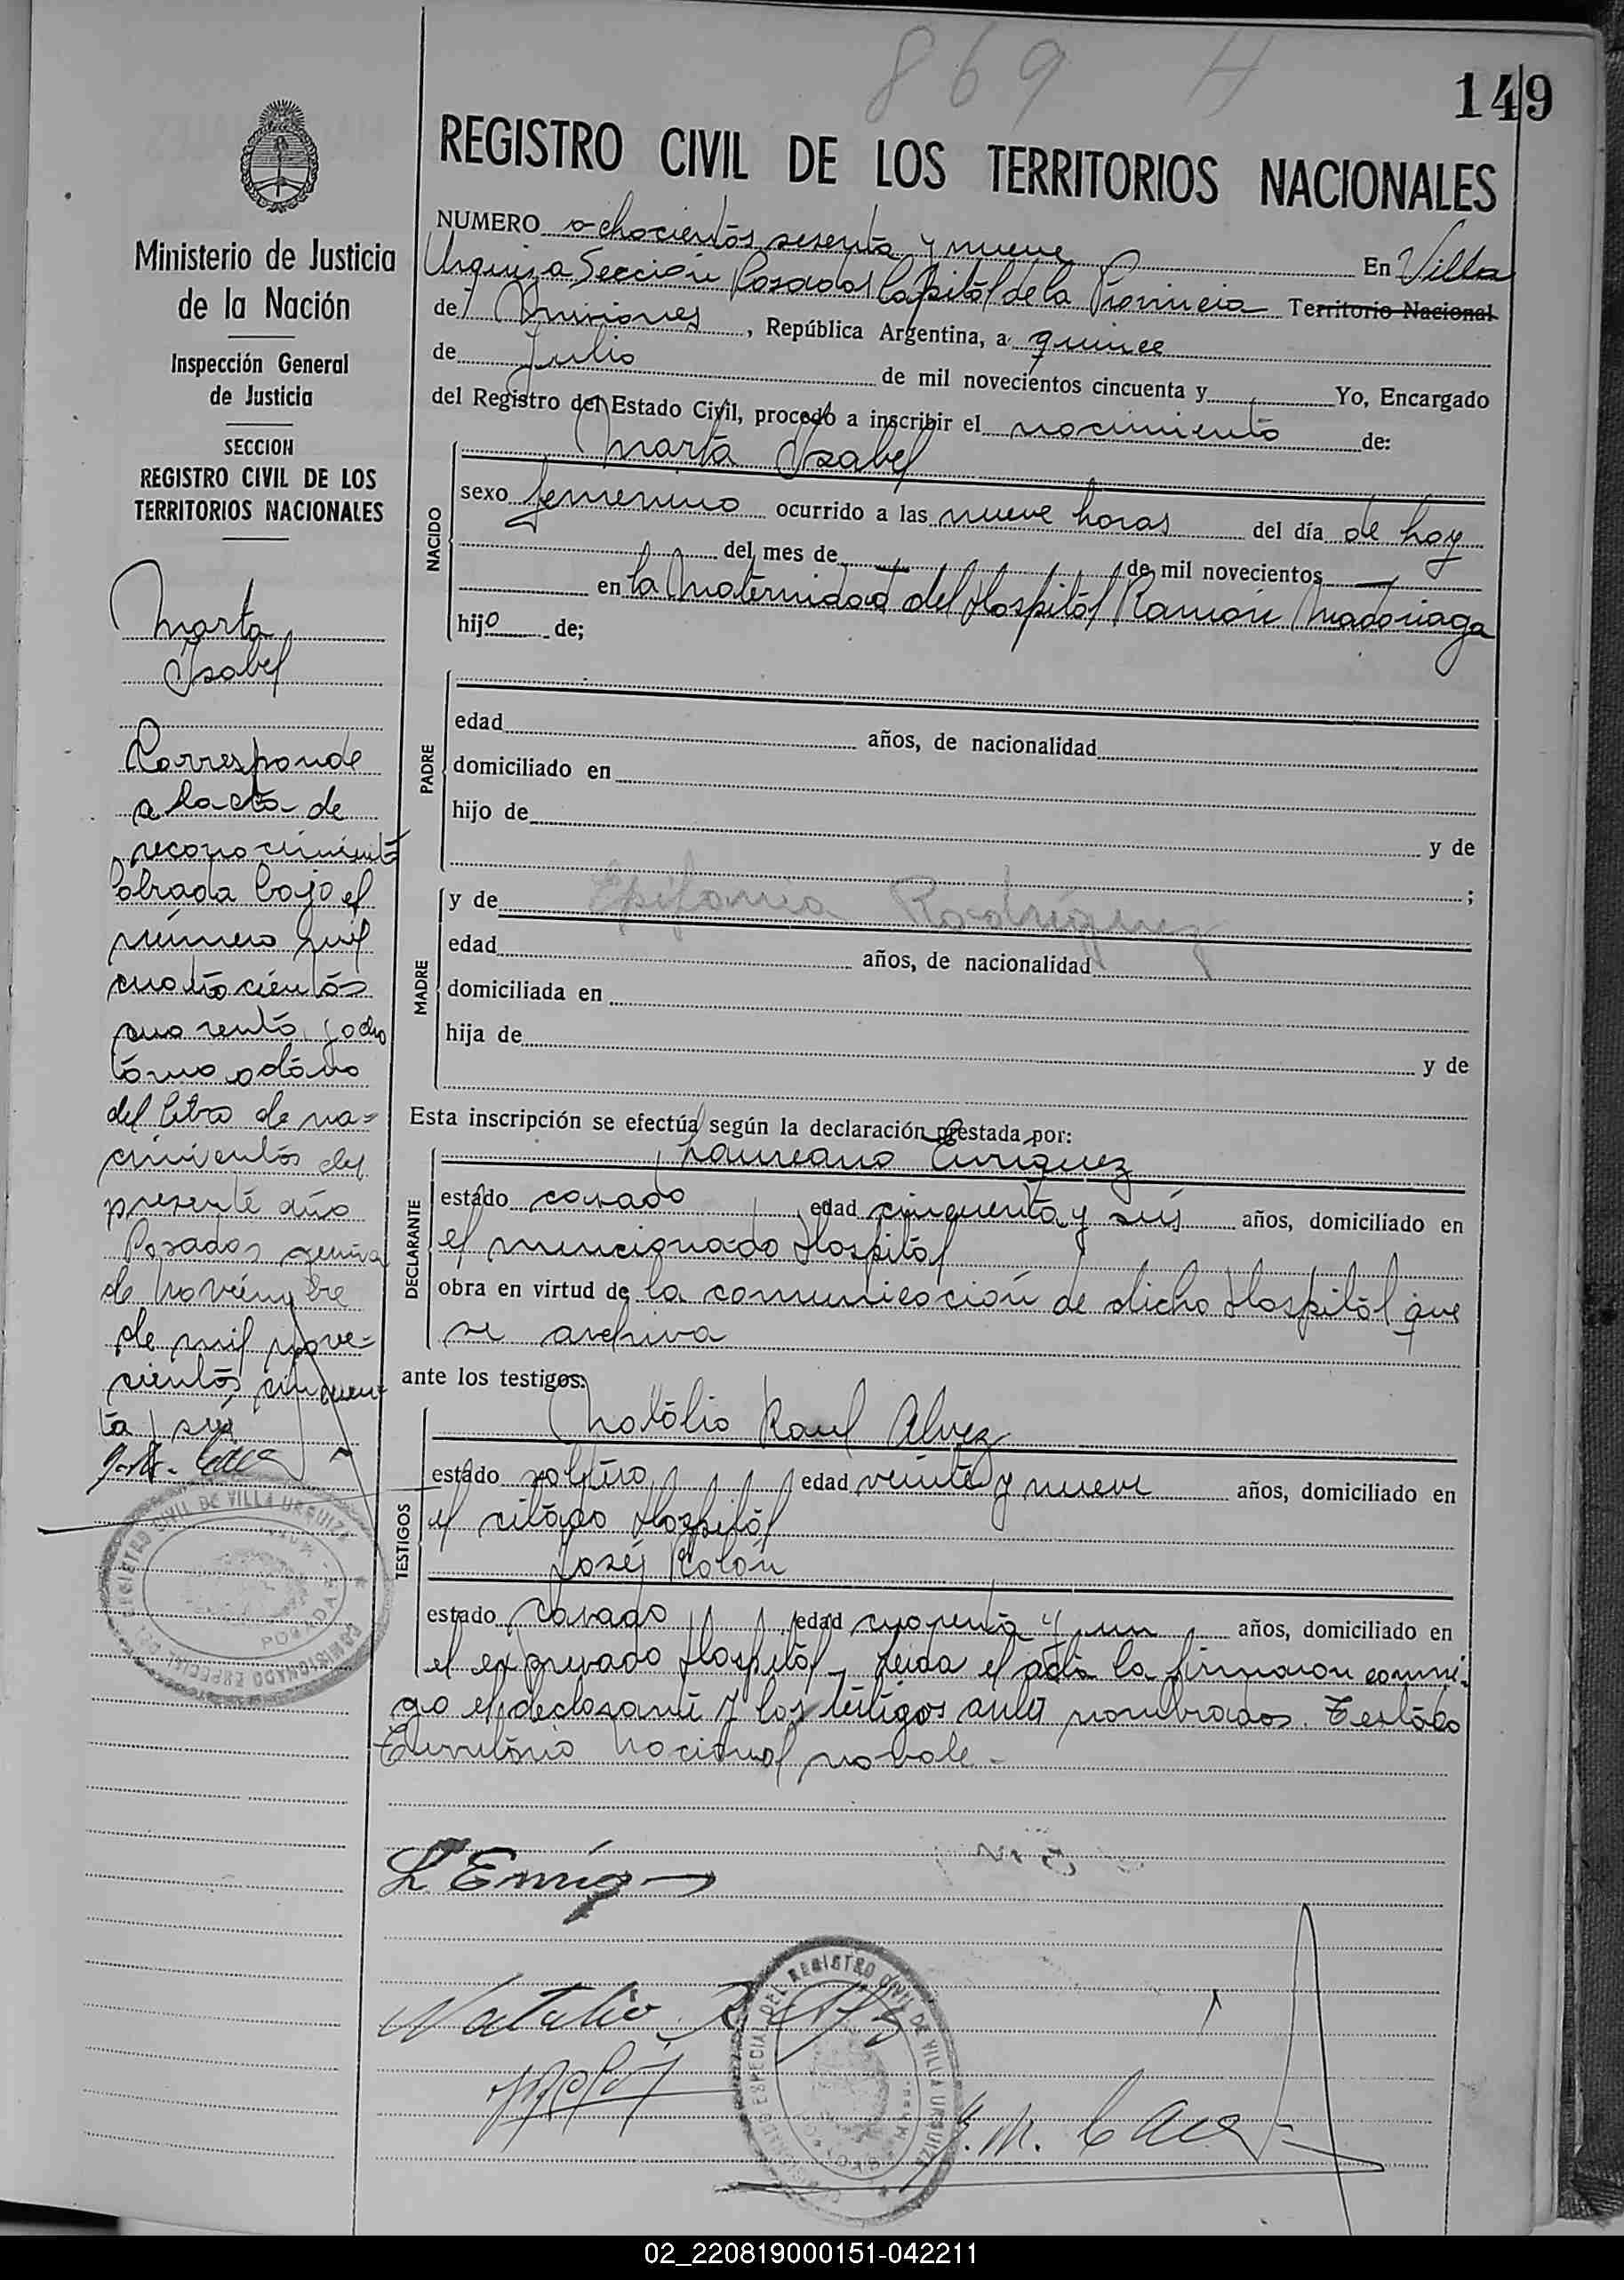 869 H
149
REGISTRO CIVIL DE LOS TERRITORIOS NACIONALES
Ministerio de Justicia
de la Nación
Inspección General
de Justicia
SECCION
REGISTRO CIVIL DE LOS
TERRITORIOS NACIONALES
Marta
Isabel
Corresponde
a lacta de
reconocimiento
lobrada bajo el
número mil
cuatrocientos
cuarenta y ocho
tomo octavo
del libro de na=
cimientos del
presente año
Posadas
de Noviembre
de mil nove=
cientos cincuen
ta y seis
REGISTRO CIVIL DE VILLA URQUIZA
COMISIONADO ESPECIAL DEL
POSADAS
NUMERO ochocientos sesenta y nueve En Villa
Urquiza Sección Posadas Capital de la Provincia Territorio Nacional
de Misiones, República Argentina, a quince
de Julio de mil novecientos cincuenta y Yo, Encargado
del Registro del Estado Civil, procedo a inscribir el nacimiento de:
NACIDO
Marta Isabel
sexo femenino ocurrido a las nueve horas del día de hoy
del mes de — de mil novecientos —
en la Maternidad del Hospital Ramón Madariaga
hijo de;
PADRE
edad años, de nacionalidad
domiciliado en
hijo de
y de
;
MADRE
y de Epifania Rodríguez
edad años, de nacionalidad
domiciliada en
hija de
y de
Esta inscripción se efectúa según la declaración prestada por:
DECLARANTE
Laureano Enriquez
estado casado edad cincuenta y seis años, domiciliado en
el mencionado Hospital
obra en virtud de la comunicación de dicho Hospital que
se archiva
ante los testigos:
TESTIGOS
Natalio Raul Alvez
estado soltero edad veinte y nueve años, domiciliado en
el citado Hospital
José Rolón
estado casado edad cuarenta y un años, domiciliado en
el expresado Hospital, leida el acta la firmaron conmi-
go el declarante y los testigos antes nombrados. Testado
Territorio Nacional no vale.-
L Enriq
Natalio R
COMISIONADO ESPECIAL DEL REGISTRO CIVIL DE VILLA URQUIZA
02_220819000151-042211